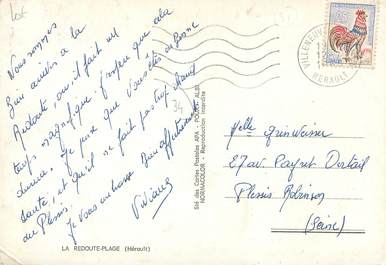 Lot
Nous sommes
bien arrivés à la
Redoute, où il fait un
temps magnifique. J'espère que cela
durera. Je pense que vous êtes en bonne
santé, et qu'il ne fait pas trop chaud
au Plessis.
Je vous embrasse bien affectueusement
Viviane
34
LA REDOUTE-PLAGE (Hérault)
Sté des Cartes Postales APA - POUX - ALBI
NORMACOLOR - Reproduction interdite
VILLENEUVE
HERAULT
Melle
27 av Payret Dortail
Plessis Robinson
(Seine)